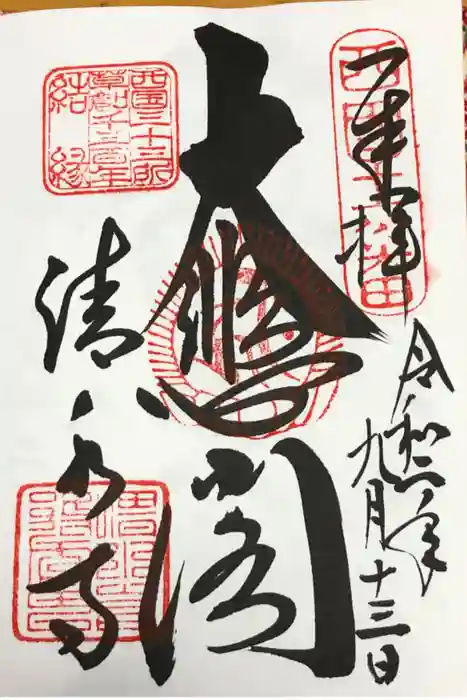 西国十六番
奉拝
令和二年
九月十三日
大悲閣
西国三十三所
草創千三百年
結縁
清水寺